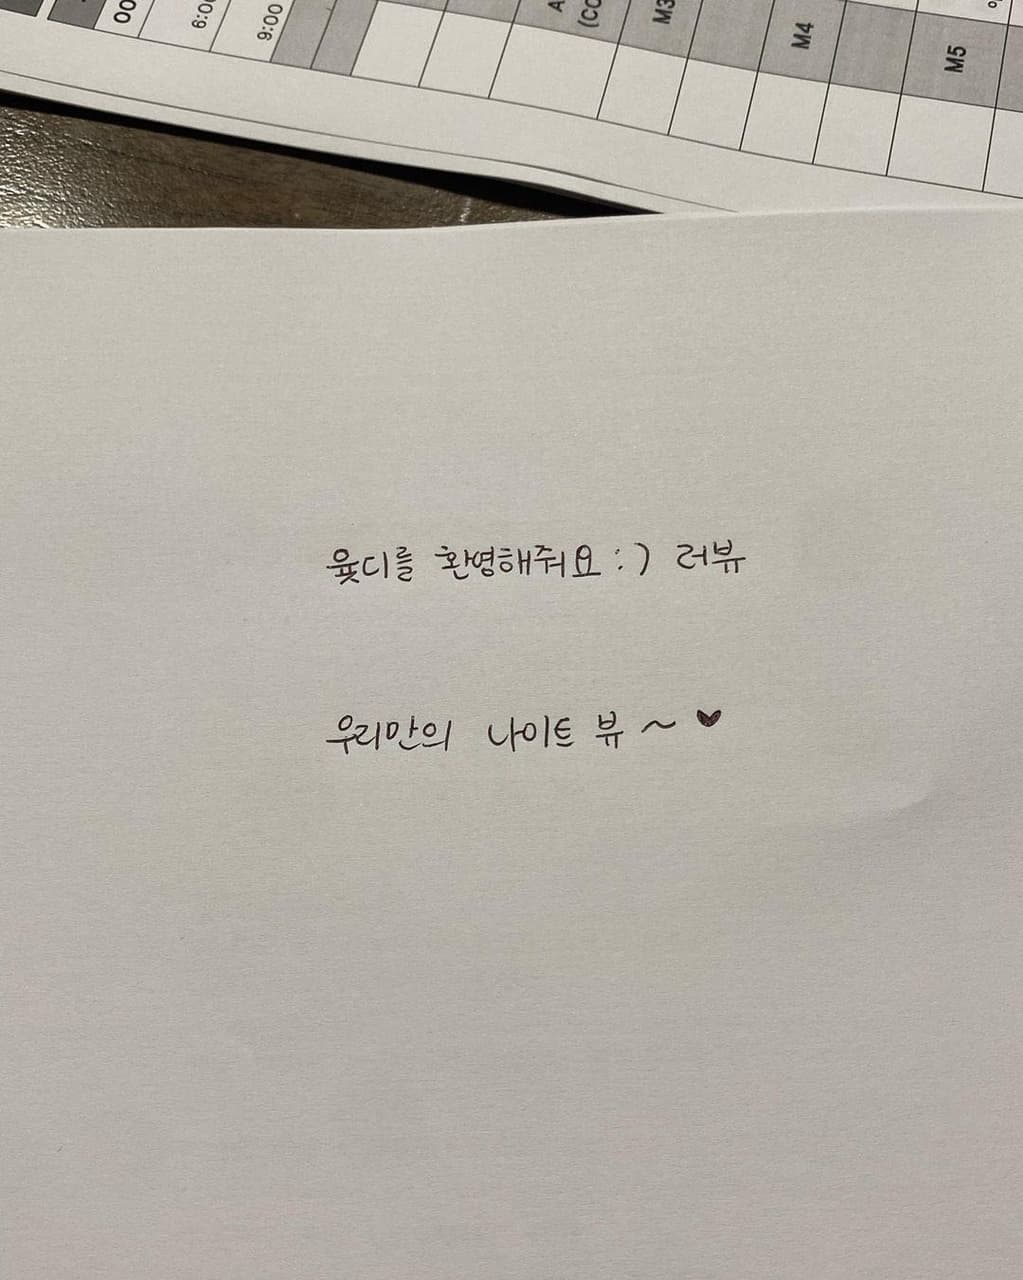 00
6:00
9:00
M3
M4
M5
윷디를 환영해줘요 :) 러뷰
우리만의 나이트 뷰 ~ ♥